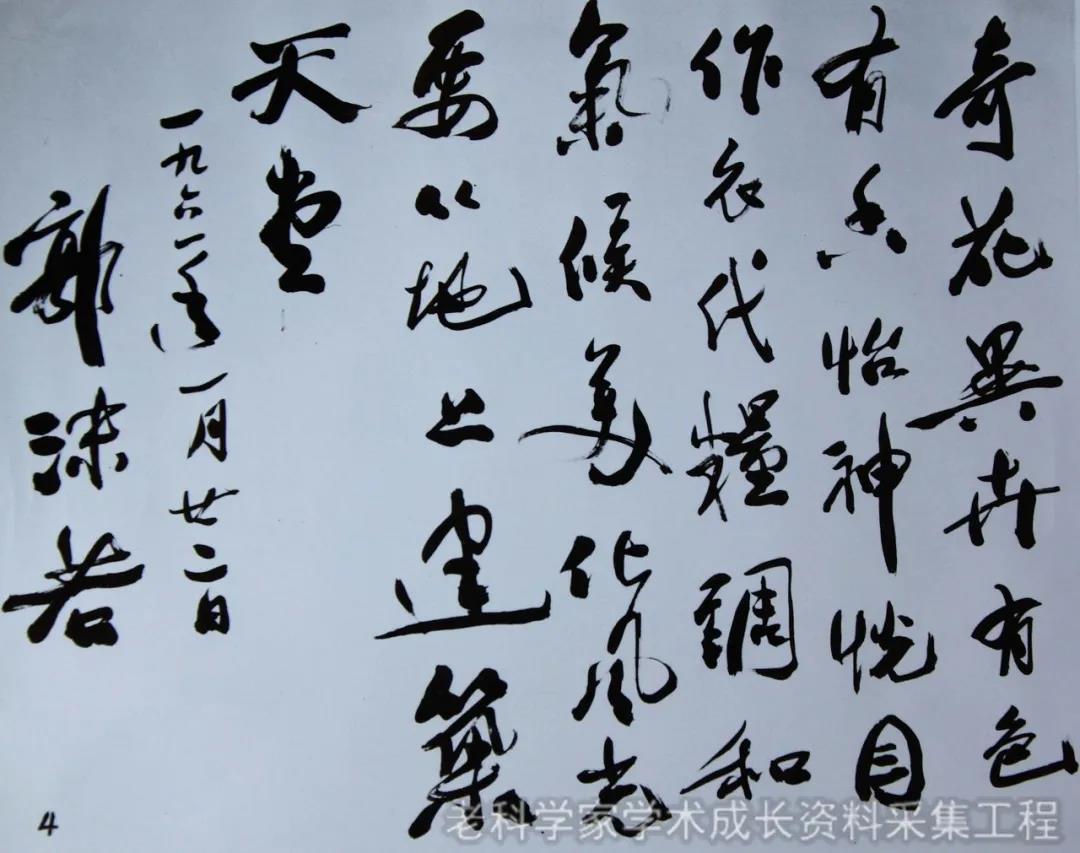 奇花異卉有色
有香怡神悅目
作衣代糧調和
氣候美化風光
要以地上建築
天堂
一九六一年一月廿二日
郭沫若
4
老科学家学术成长资料采集工程